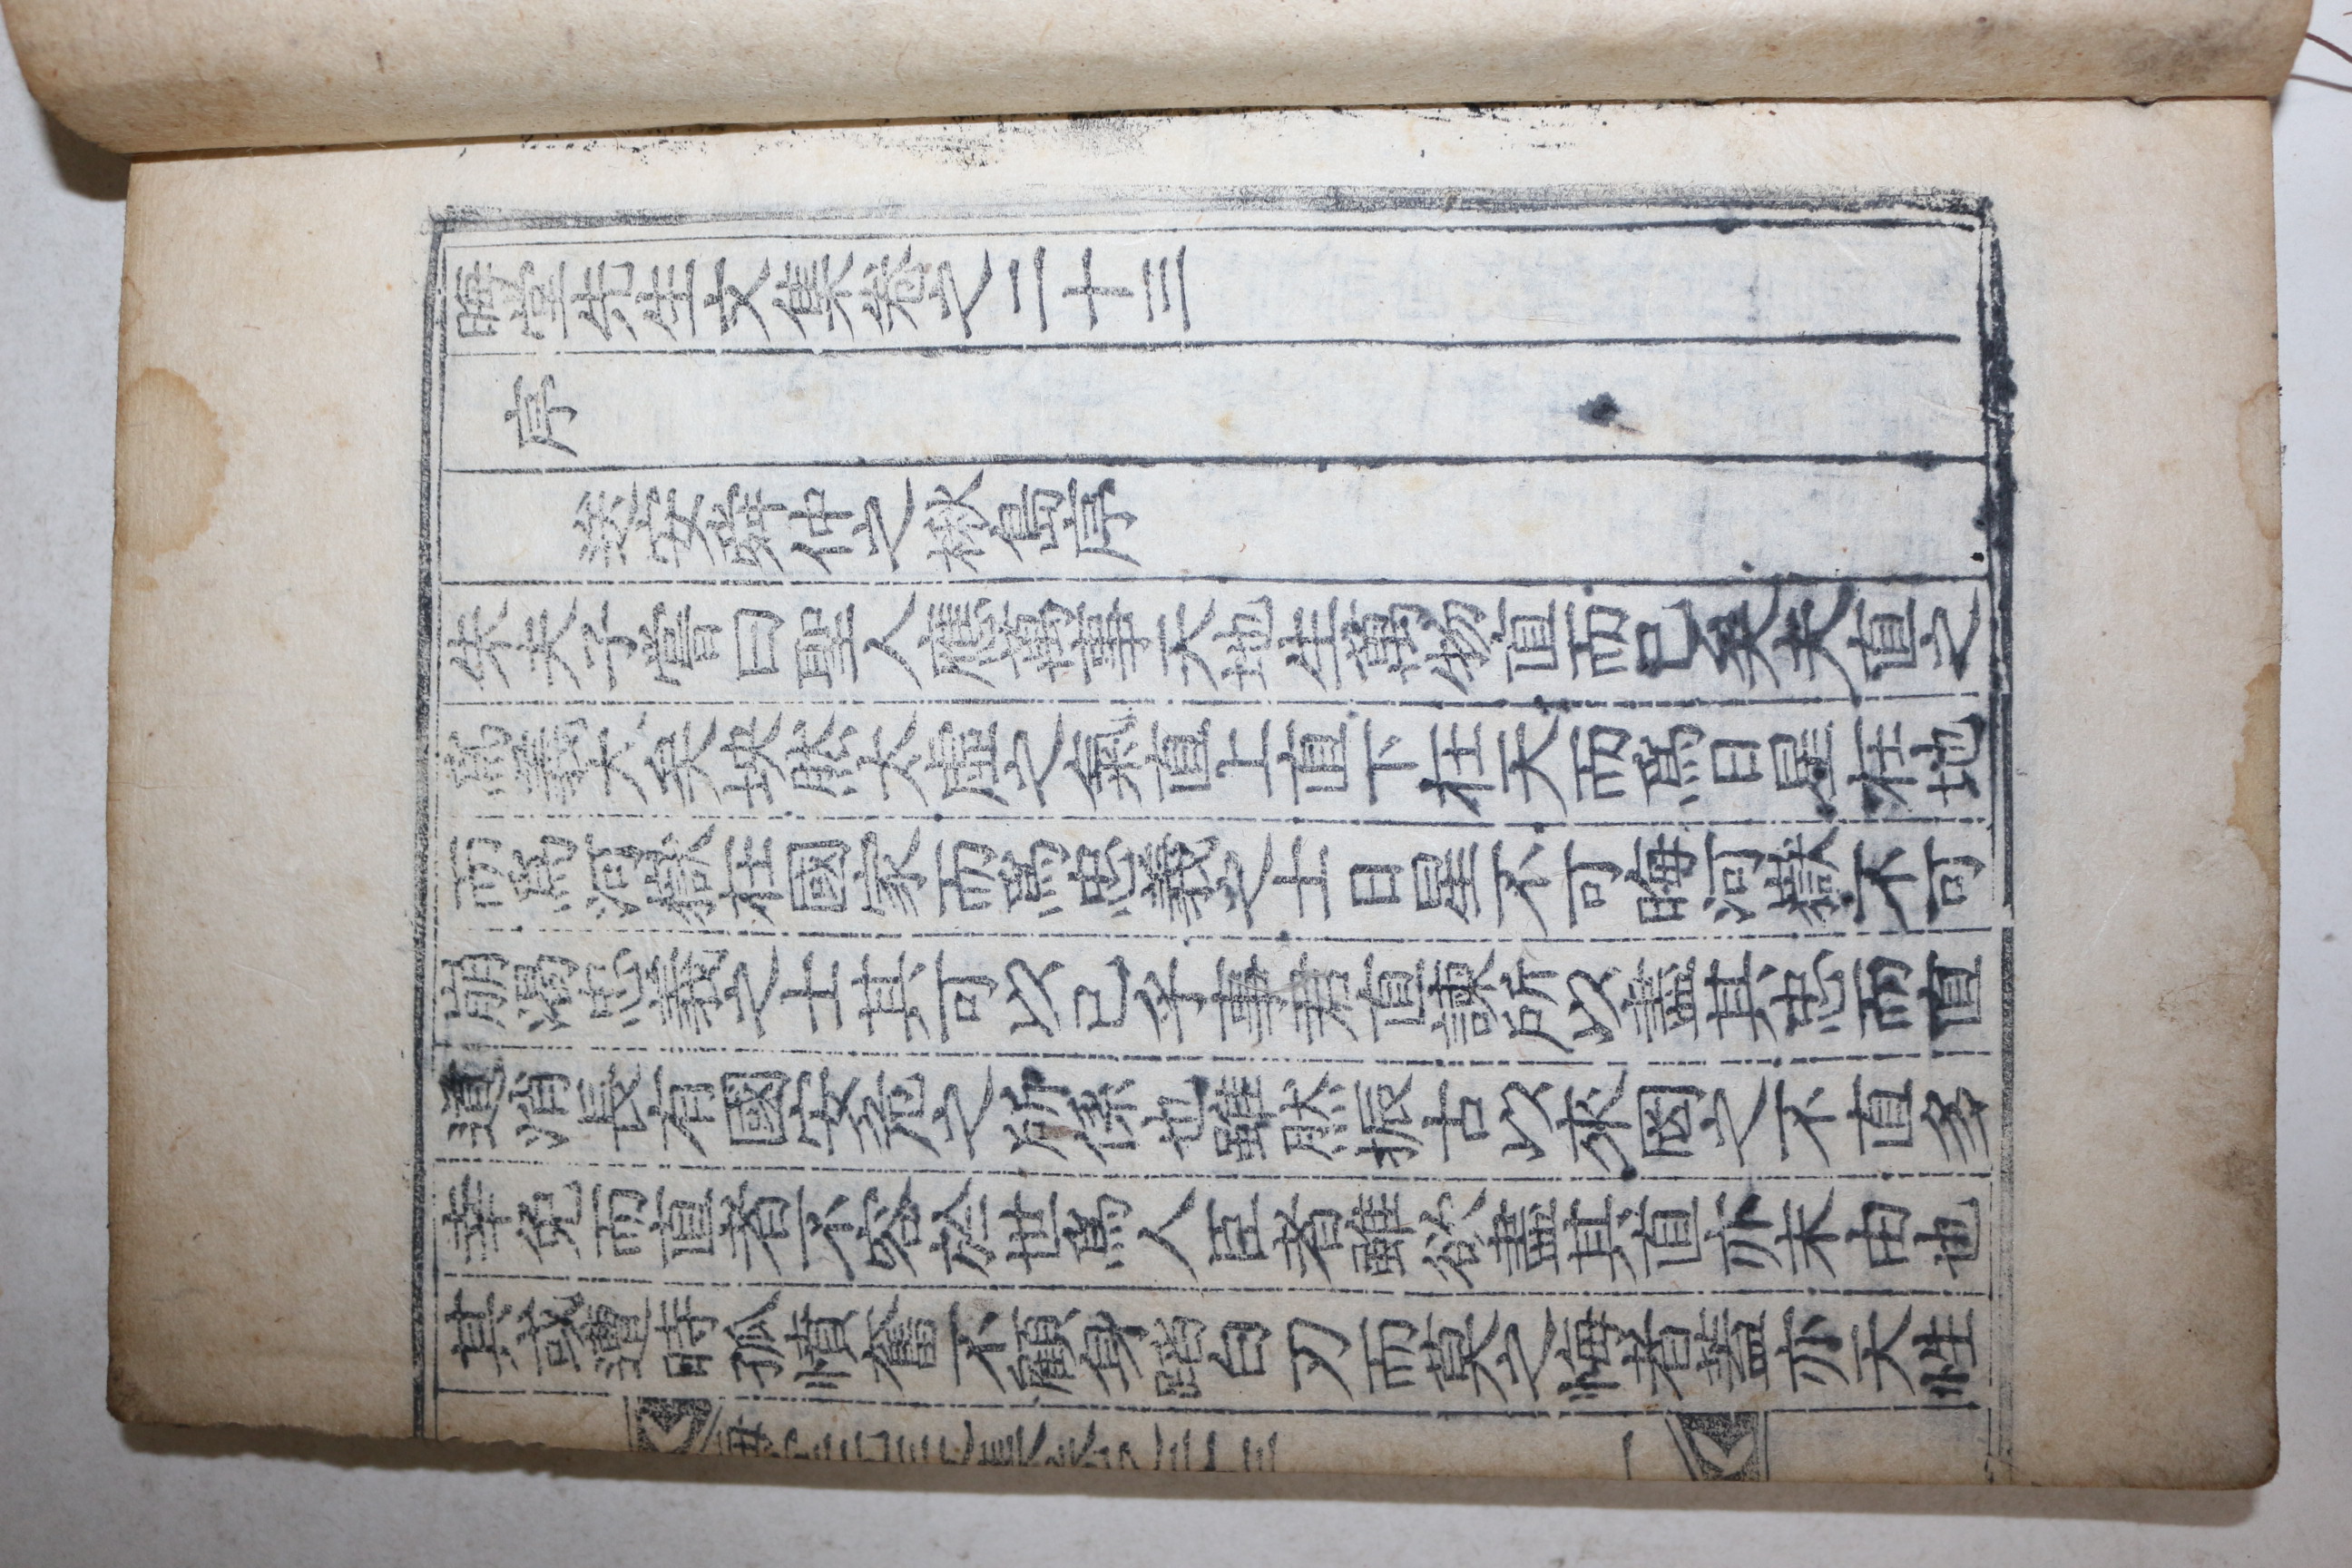 晦堂先生文集卷之二十三
序
仲之寓序
朱夫子嘗曰聖人應萬事天地生萬物直而已矣夫直之
爲義大矣坱然大虛之氣直上直下在天而爲日星在地
而爲河嶽在國家而爲忠義之士日星不可晦河嶽不可
崩渴忠義之士其可以已乎事君直諒所以盡其忠而直
道消長有國安危之所係也雖然振古以來罔之不直多
幸免而直者不容於世爲人臣者雖欲盡其直亦末由也
其或遭時孤憤奮不顧身蹈白刃而莫之悔者蓋亦天性